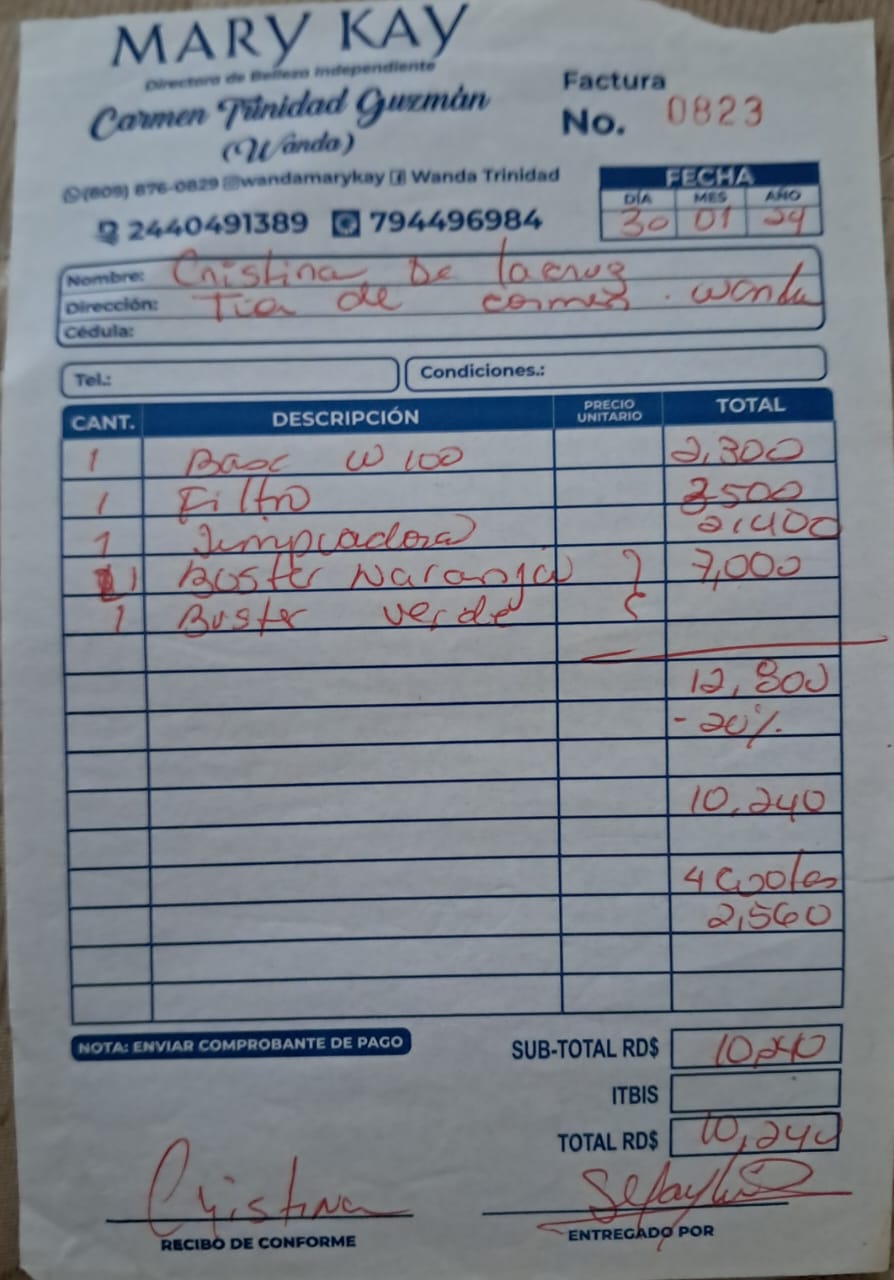 MARY KAY
Directora de Belleza Independiente
Carmen Trinidad Guzmán
(Wanda)
(809) 876-0829 wandamarykay Wanda Trinidad
2440491389 794496984
Factura
No. 0823
FECHA
DÍA MES AÑO
30 01 24
Nombre: Cristina De la cruz
Dirección: Tia de . Wanda
Cédula:
Tel.: Condiciones.:
CANT. DESCRIPCIÓN PRECIO UNITARIO TOTAL
1 Base W 100 2,300
1 Filtro 3500
1 2,400
1 Boster Naranja 7,000
1 Buster verde
12,800
- 20%
10,240
4
2,560
NOTA: ENVIAR COMPROBANTE DE PAGO
SUB-TOTAL RD$ 10,240
ITBIS
TOTAL RD$ 10,240
Cristina
RECIBO DE CONFORME
ENTREGADO POR